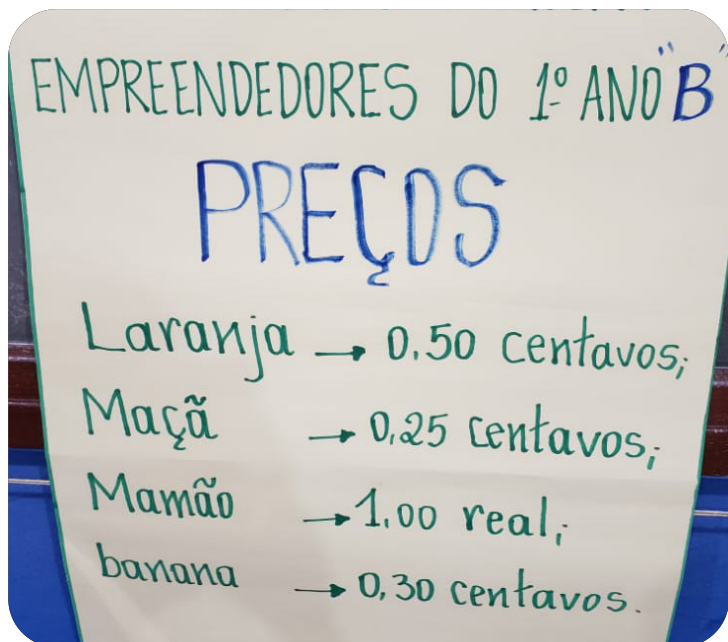 EMPREENDEDORES DO 1º ANO "B"
PREÇOS
Laranja → 0,50 centavos;
Maçã → 0,25 centavos;
Mamão → 1,00 real;
banana → 0,30 centavos.